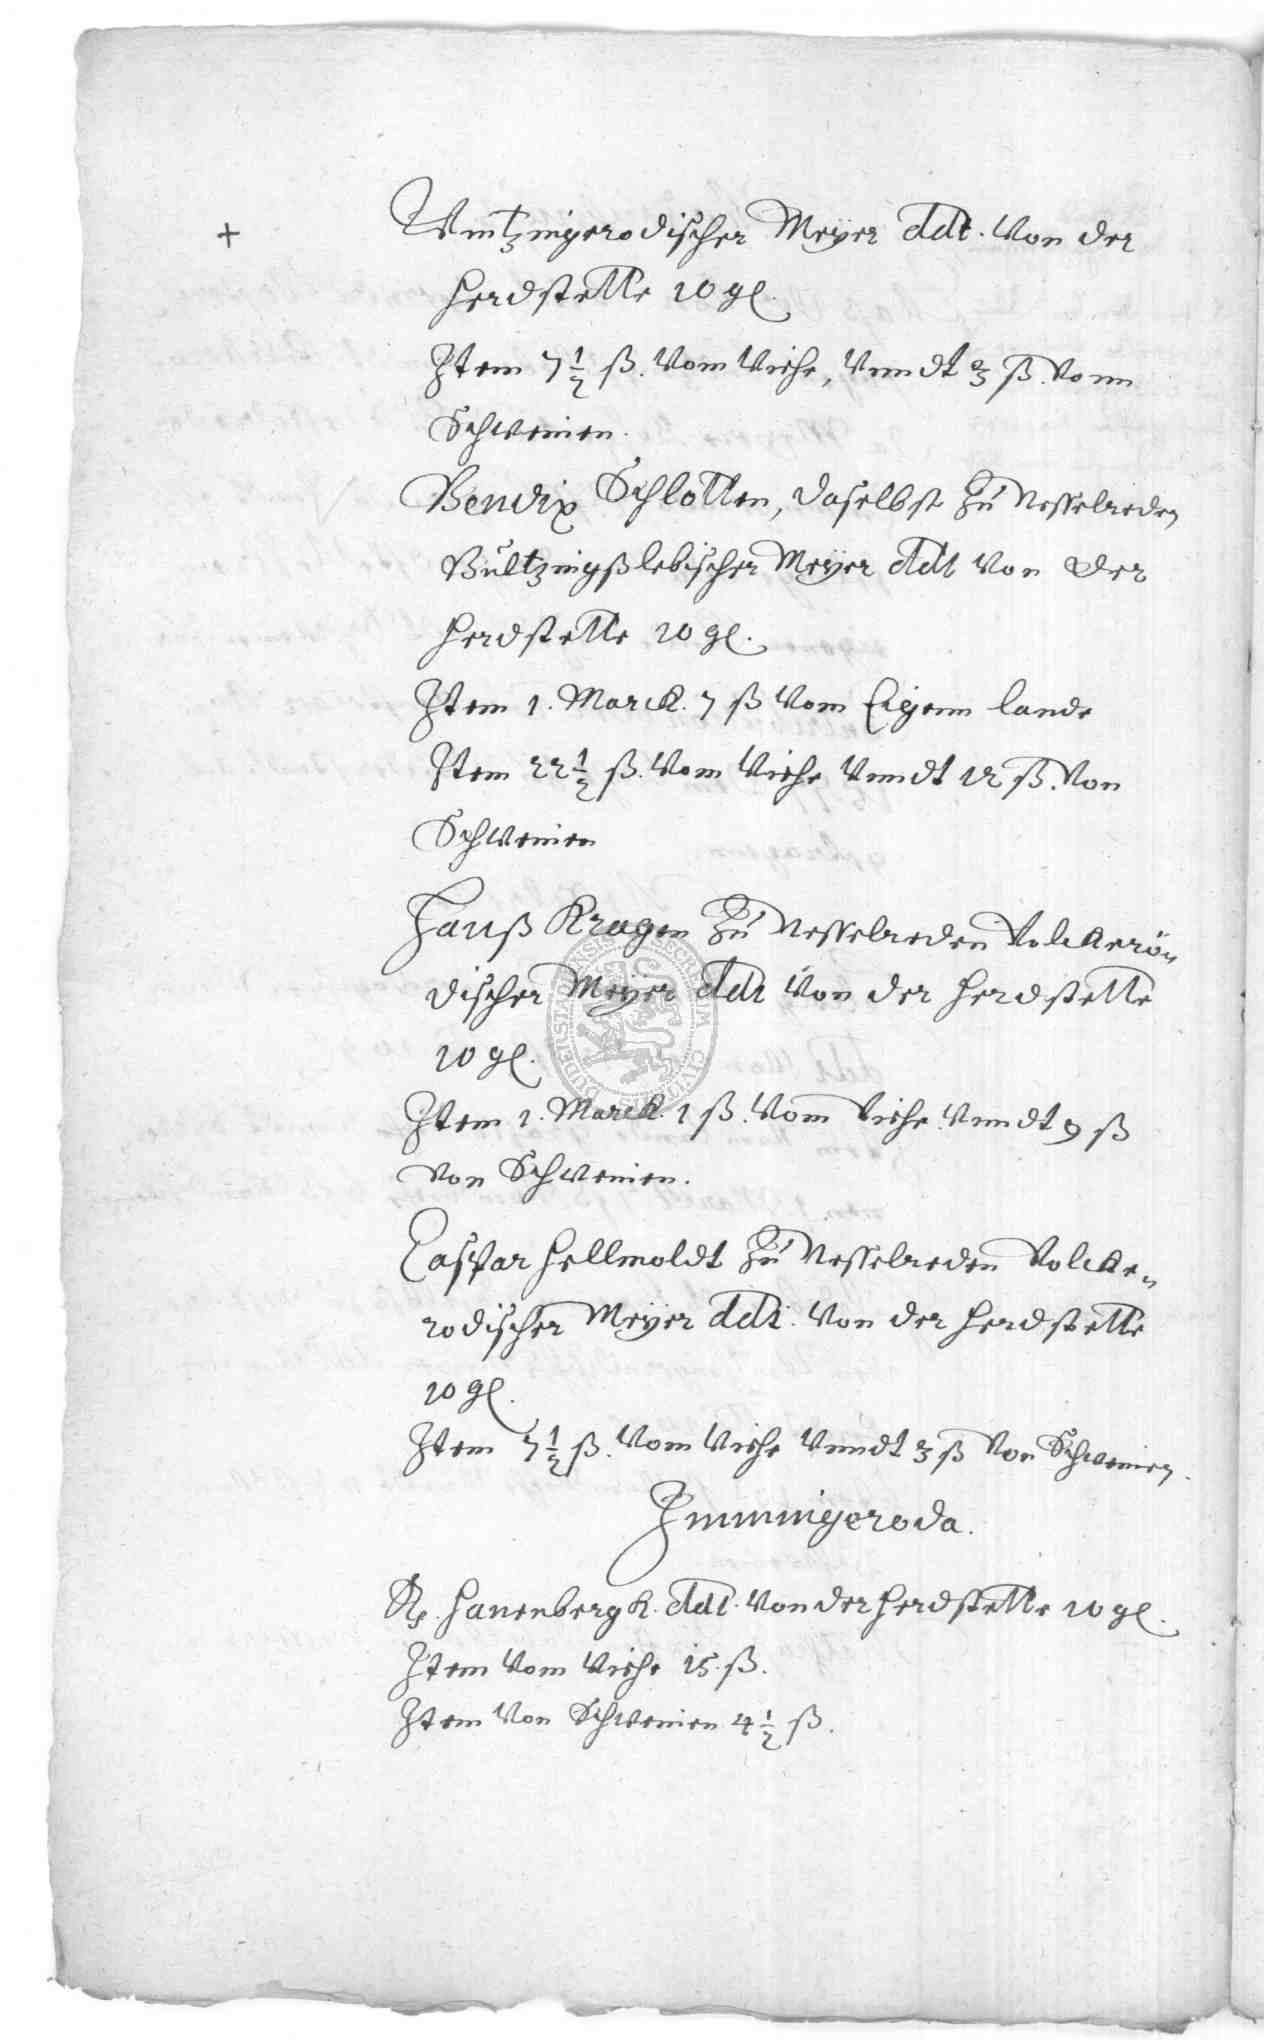 + Wintzingerodischer Meÿer ddt. Von der
herdstette 10 gl.
Item 7 1/2 ß. Vom Viehe, Vnndt 3 ß. Vonn
Schweinen.
Bendix Schlotten, daselbst zu Nesselreden
Bultzingßlebischer Meÿer ddt Von der
herdstette 10 gl.
Item 1. Marck. 7 ß Vom Eigenn lande
Item 22 1/2 ß. Vom Viehe Vnndt 12 ß. Von
Schweinen
Hanß Kragen zu Nesselreden Volckerö„
discher Meÿer ddt Von der herdstette
10 gl.
Item 1. Marck. 1 ß. Vom Viehe Vnndt 9 ß
Von Schweinen.
Caspar Hellmoldt zu Nesselreden Volcke„
rodischer Meÿer ddt. Von der herdstette
10 gl.
Item 7 1/2 ß. Vom Viehe Vnndt 3 ß Von Schweinen.
Immingeroda.
hanenbergk. ddt. Von der herdstette 10 gl.
Item Vom Viehe 15. ß.
Item Von Schweinen 4 1/2 ß.